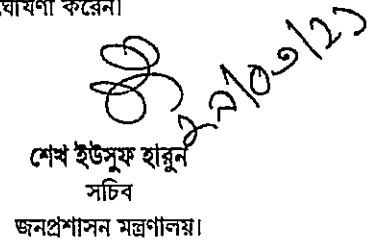 ঘোষণা করেন।
২৯/০৩/২১
শেখ ইউসুফ হারুন
সচিব
জনপ্রশাসন মন্ত্রণালয়।